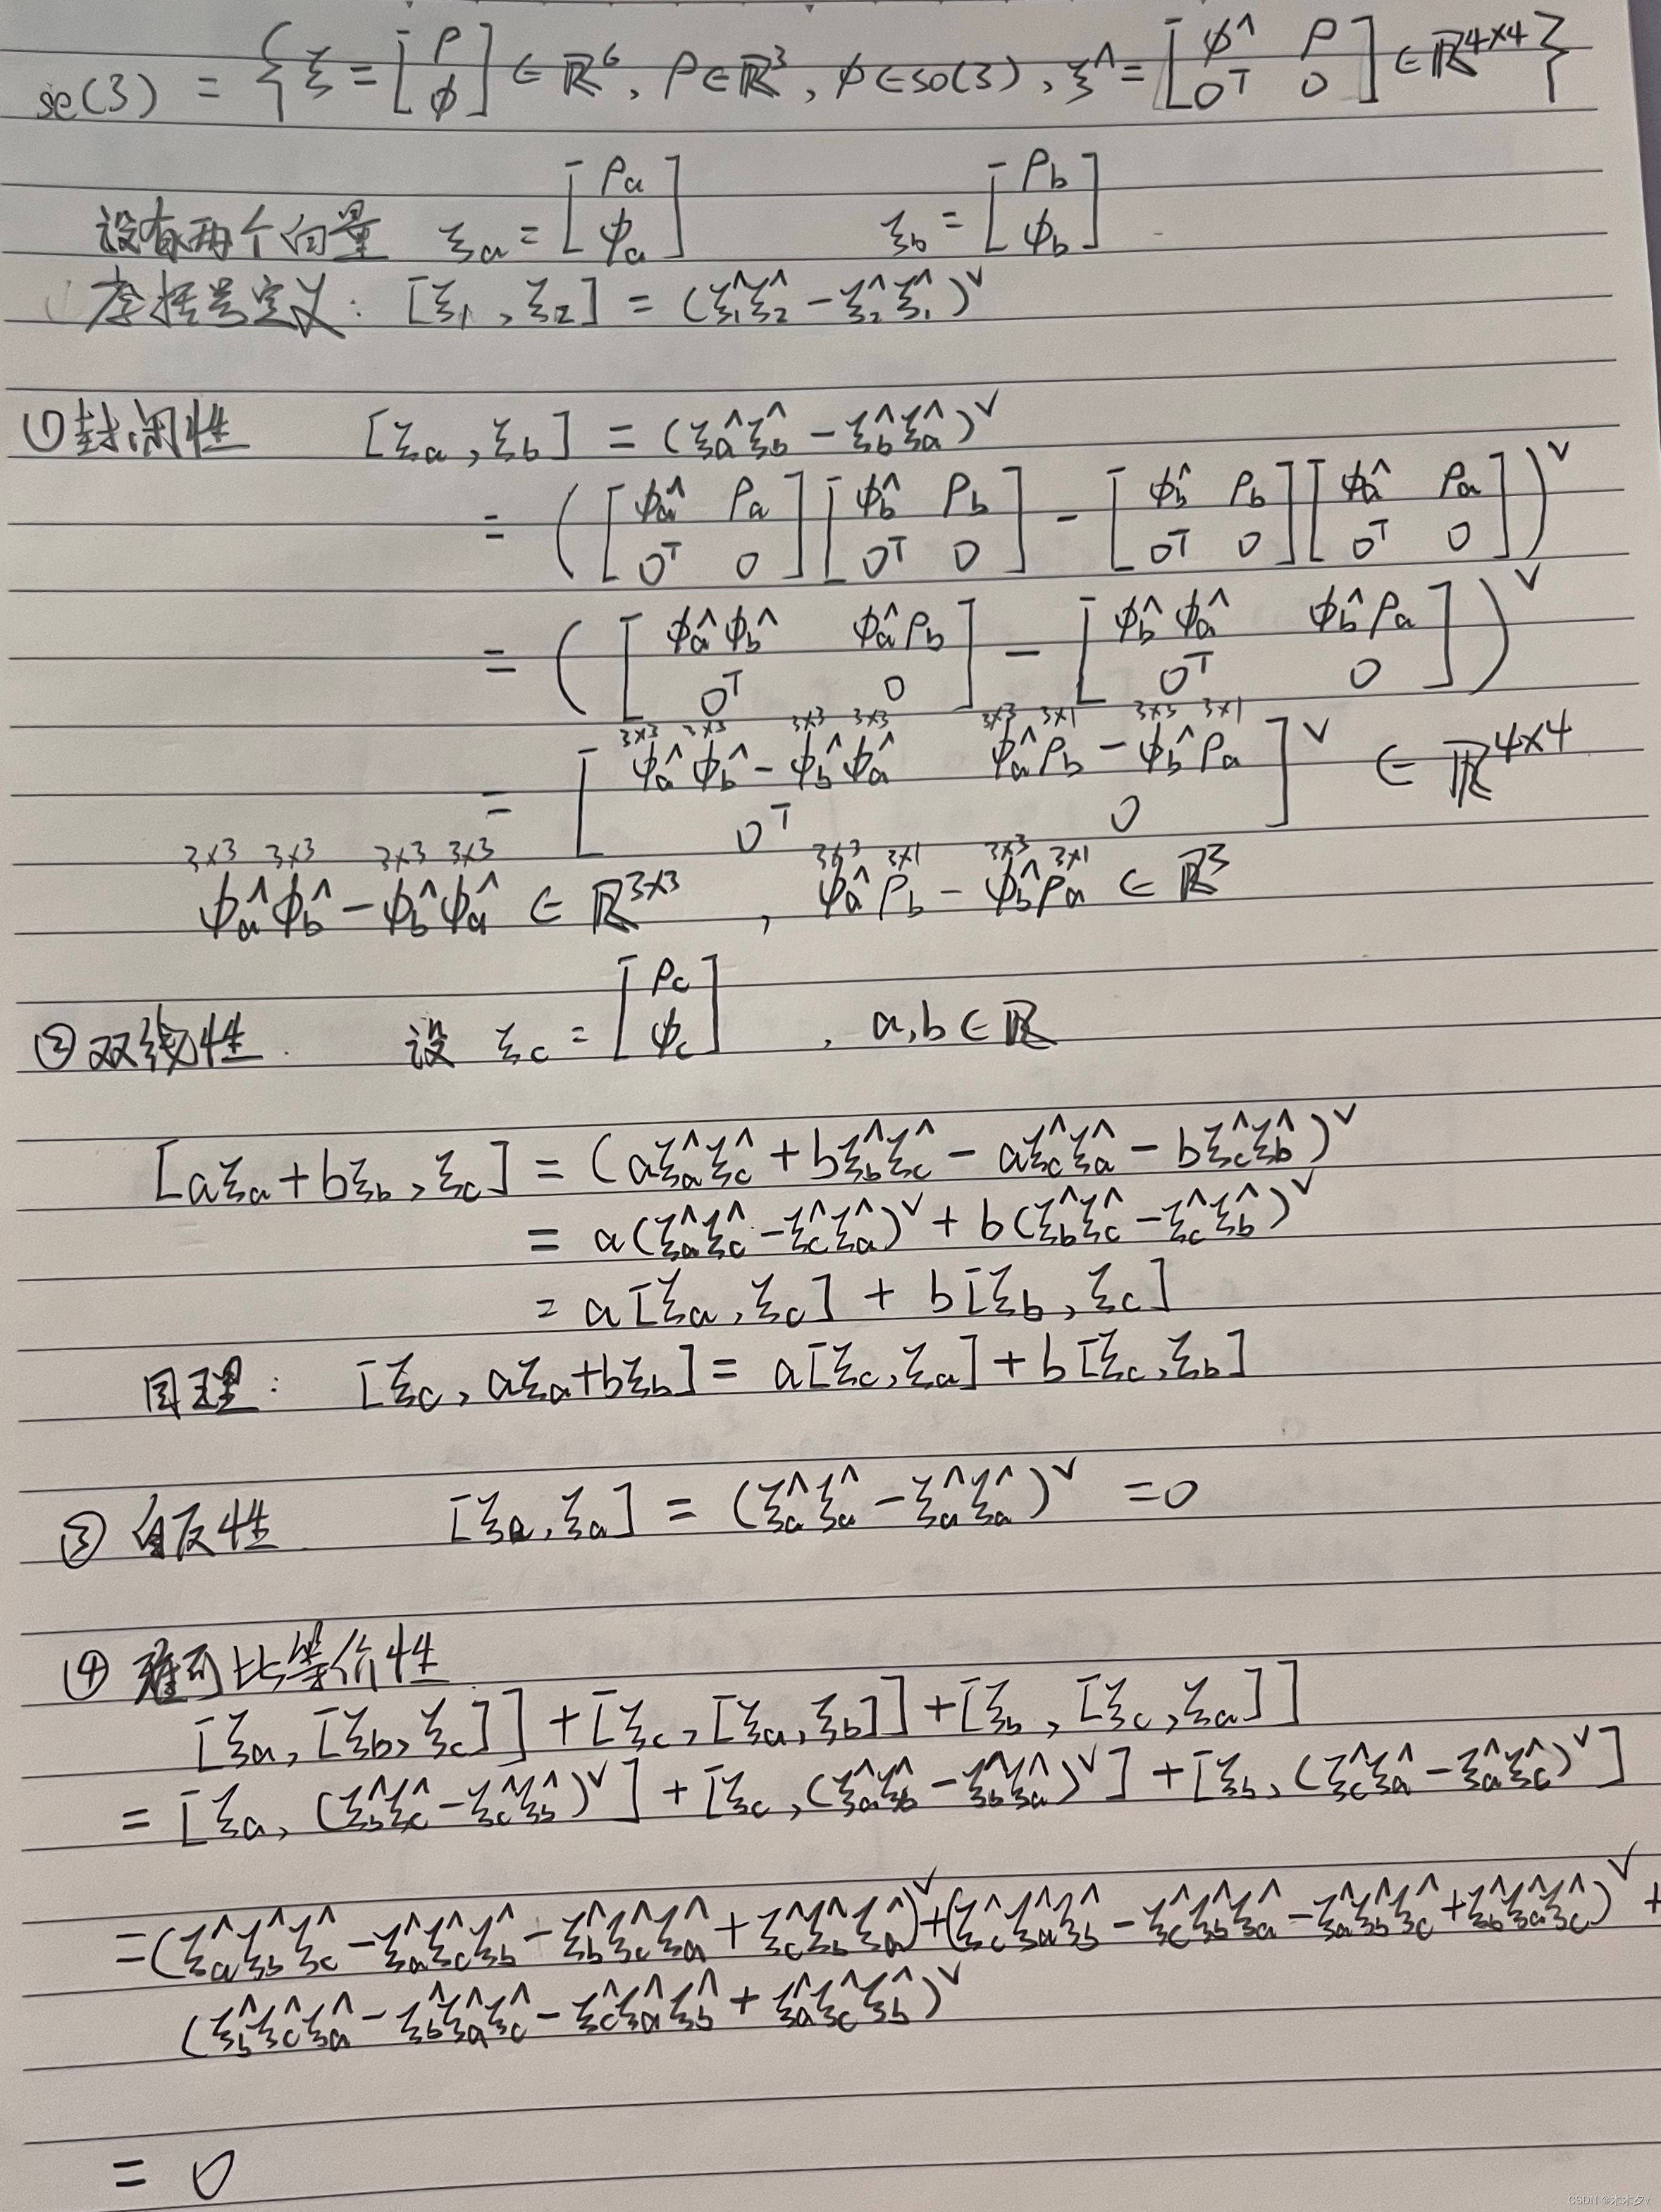 se(3) = { ξ = [ρ; φ] ∈ ℝ⁶, ρ∈ℝ³, φ∈so(3), ξ^ = [φ^ ρ; 0ᵀ 0] ∈ ℝ⁴ˣ⁴ }
设有两个向量 ξa = [ρa; φa] ξb = [ρb; φb]
李括号定义: [ξ₁, ξ₂] = (ξ₁^ξ₂^ - ξ₂^ξ₁^)ᵛ
① 封闭性 [ξa, ξb] = (ξa^ξb^ - ξb^ξa^)ᵛ
= ([φa^ ρa; 0ᵀ 0][φb^ ρb; 0ᵀ 0] - [φb^ ρb; 0ᵀ 0][φa^ ρa; 0ᵀ 0])ᵛ
= ([φa^φb^ φa^ρb; 0ᵀ 0] - [φb^φa^ φb^ρa; 0ᵀ 0])ᵛ
3×3 3×3 3×3 3×3 3×3 3×1 3×3 3×1
= [φa^φb^ - φb^φa^ φa^ρb - φb^ρa; 0ᵀ 0]ᵛ ∈ ℝ⁴ˣ⁴
3×3 3×3 3×3 3×3 3×3 3×1 3×3 3×1
φa^φb^ - φb^φa^ ∈ ℝ³ˣ³ , φa^ρb - φb^ρa ∈ ℝ³
② 双线性. 设 ξc = [ρc; φc] , a,b ∈ ℝ
[aξa + bξb, ξc] = (aξa^ξc^ + bξb^ξc^ - aξc^ξa^ - bξc^ξb^)ᵛ
= a(ξa^ξc^ - ξc^ξa^)ᵛ + b(ξb^ξc^ - ξc^ξb^)ᵛ
= a[ξa, ξc] + b[ξb, ξc]
同理: [ξc, aξa+bξb] = a[ξc, ξa] + b[ξc, ξb]
③ 自反性 [ξa, ξa] = (ξa^ξa^ - ξa^ξa^)ᵛ = 0
④ 雅可比等价性
[ξa, [ξb, ξc]] + [ξc, [ξa, ξb]] + [ξb, [ξc, ξa]]
= [ξa, (ξb^ξc^ - ξc^ξb^)ᵛ] + [ξc, (ξa^ξb^ - ξb^ξa^)ᵛ] + [ξb, (ξc^ξa^ - ξa^ξc^)ᵛ]
= (ξa^ξb^ξc^ - ξa^ξc^ξb^ - ξb^ξc^ξa^ + ξc^ξb^ξa^)ᵛ + (ξc^ξa^ξb^ - ξc^ξb^ξa^ - ξa^ξb^ξc^ + ξb^ξa^ξc^)ᵛ +
(ξb^ξc^ξa^ - ξb^ξa^ξc^ - ξc^ξa^ξb^ + ξa^ξc^ξb^)ᵛ
= 0
CSDN @木木夕v